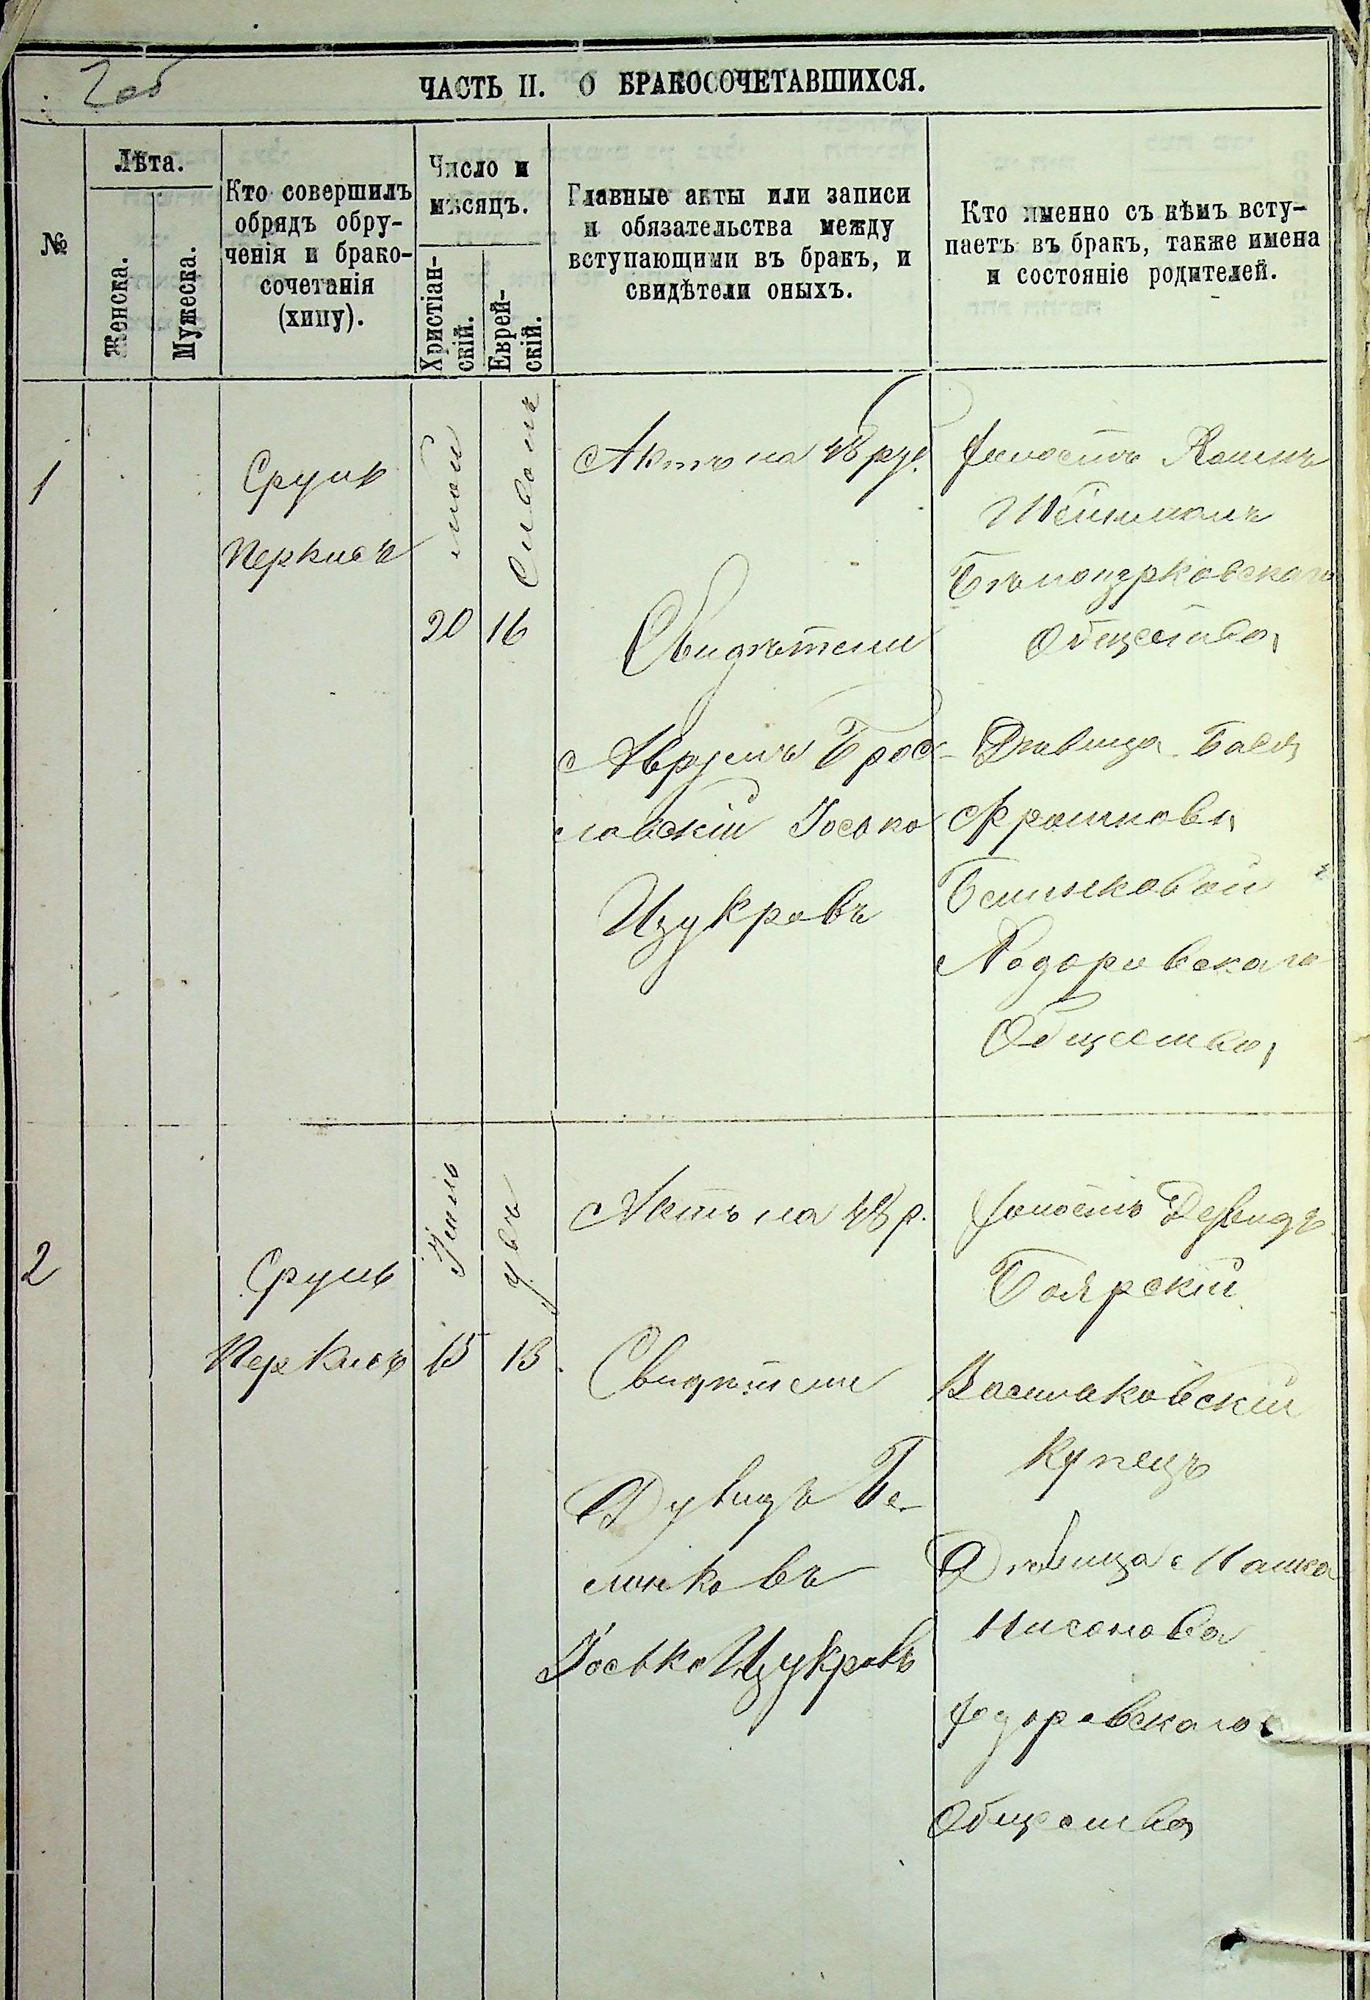 2об
ЧАСТЬ II. О БРАКОСОЧЕТАВШИХСЯ.
№
Лѣта.
Женска.
Мужеска.
Кто совершилъ
обрядъ обру-
ченія и брако-
сочетанія
(хипу).
Число и
мѣсяцъ.
Христіан-
скій.
Еврей-
скій.
Главные акты или записи
и обязательства между
вступающими въ бракъ, и
свидѣтели оныхъ.
Кто именно съ кѣмъ всту-
паетъ въ бракъ, также имена
и состояніе родителей.
1
Сруль
Перкисъ
май
20
Сивонъ
16
Актъ на 48 руб.
Свидѣтели
Аврумъ Брос-
лавскій Іосько
Цукровъ
Холостъ
Бѣлоцерковскаго
Общества,
Дѣвица Бася
Фроимова,
Белинковой
Ходоровскаго
Общества,
2
Сруль
Перкисъ
Іюль
15
13
Актъ на 48 р.
Свидѣтели
Дувидъ Бе-
линковъ
Іосько Цукровъ
Холостъ Дувидъ
Боярскій
Васильковскій
Купецъ
Дѣвица
Нисонова
Ходоровскаго
Общества